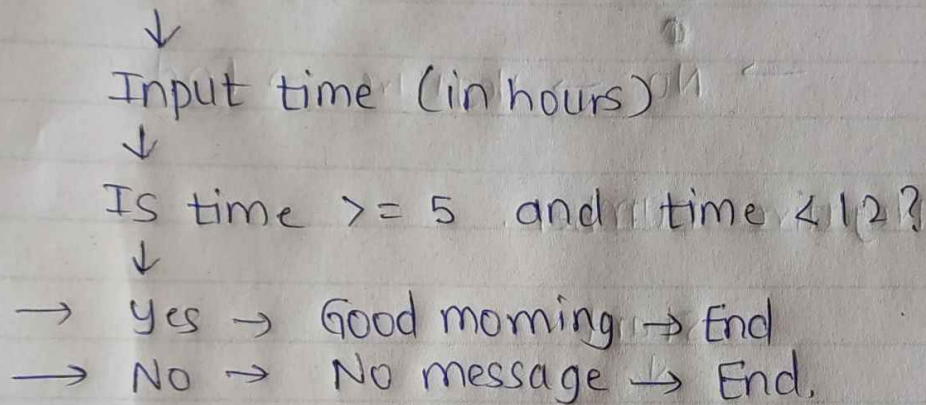 ↓
Input time (in hours)
↓
Is time >= 5 and time < 12?
↓
→ Yes → Good morning → End
→ No → No message → End.